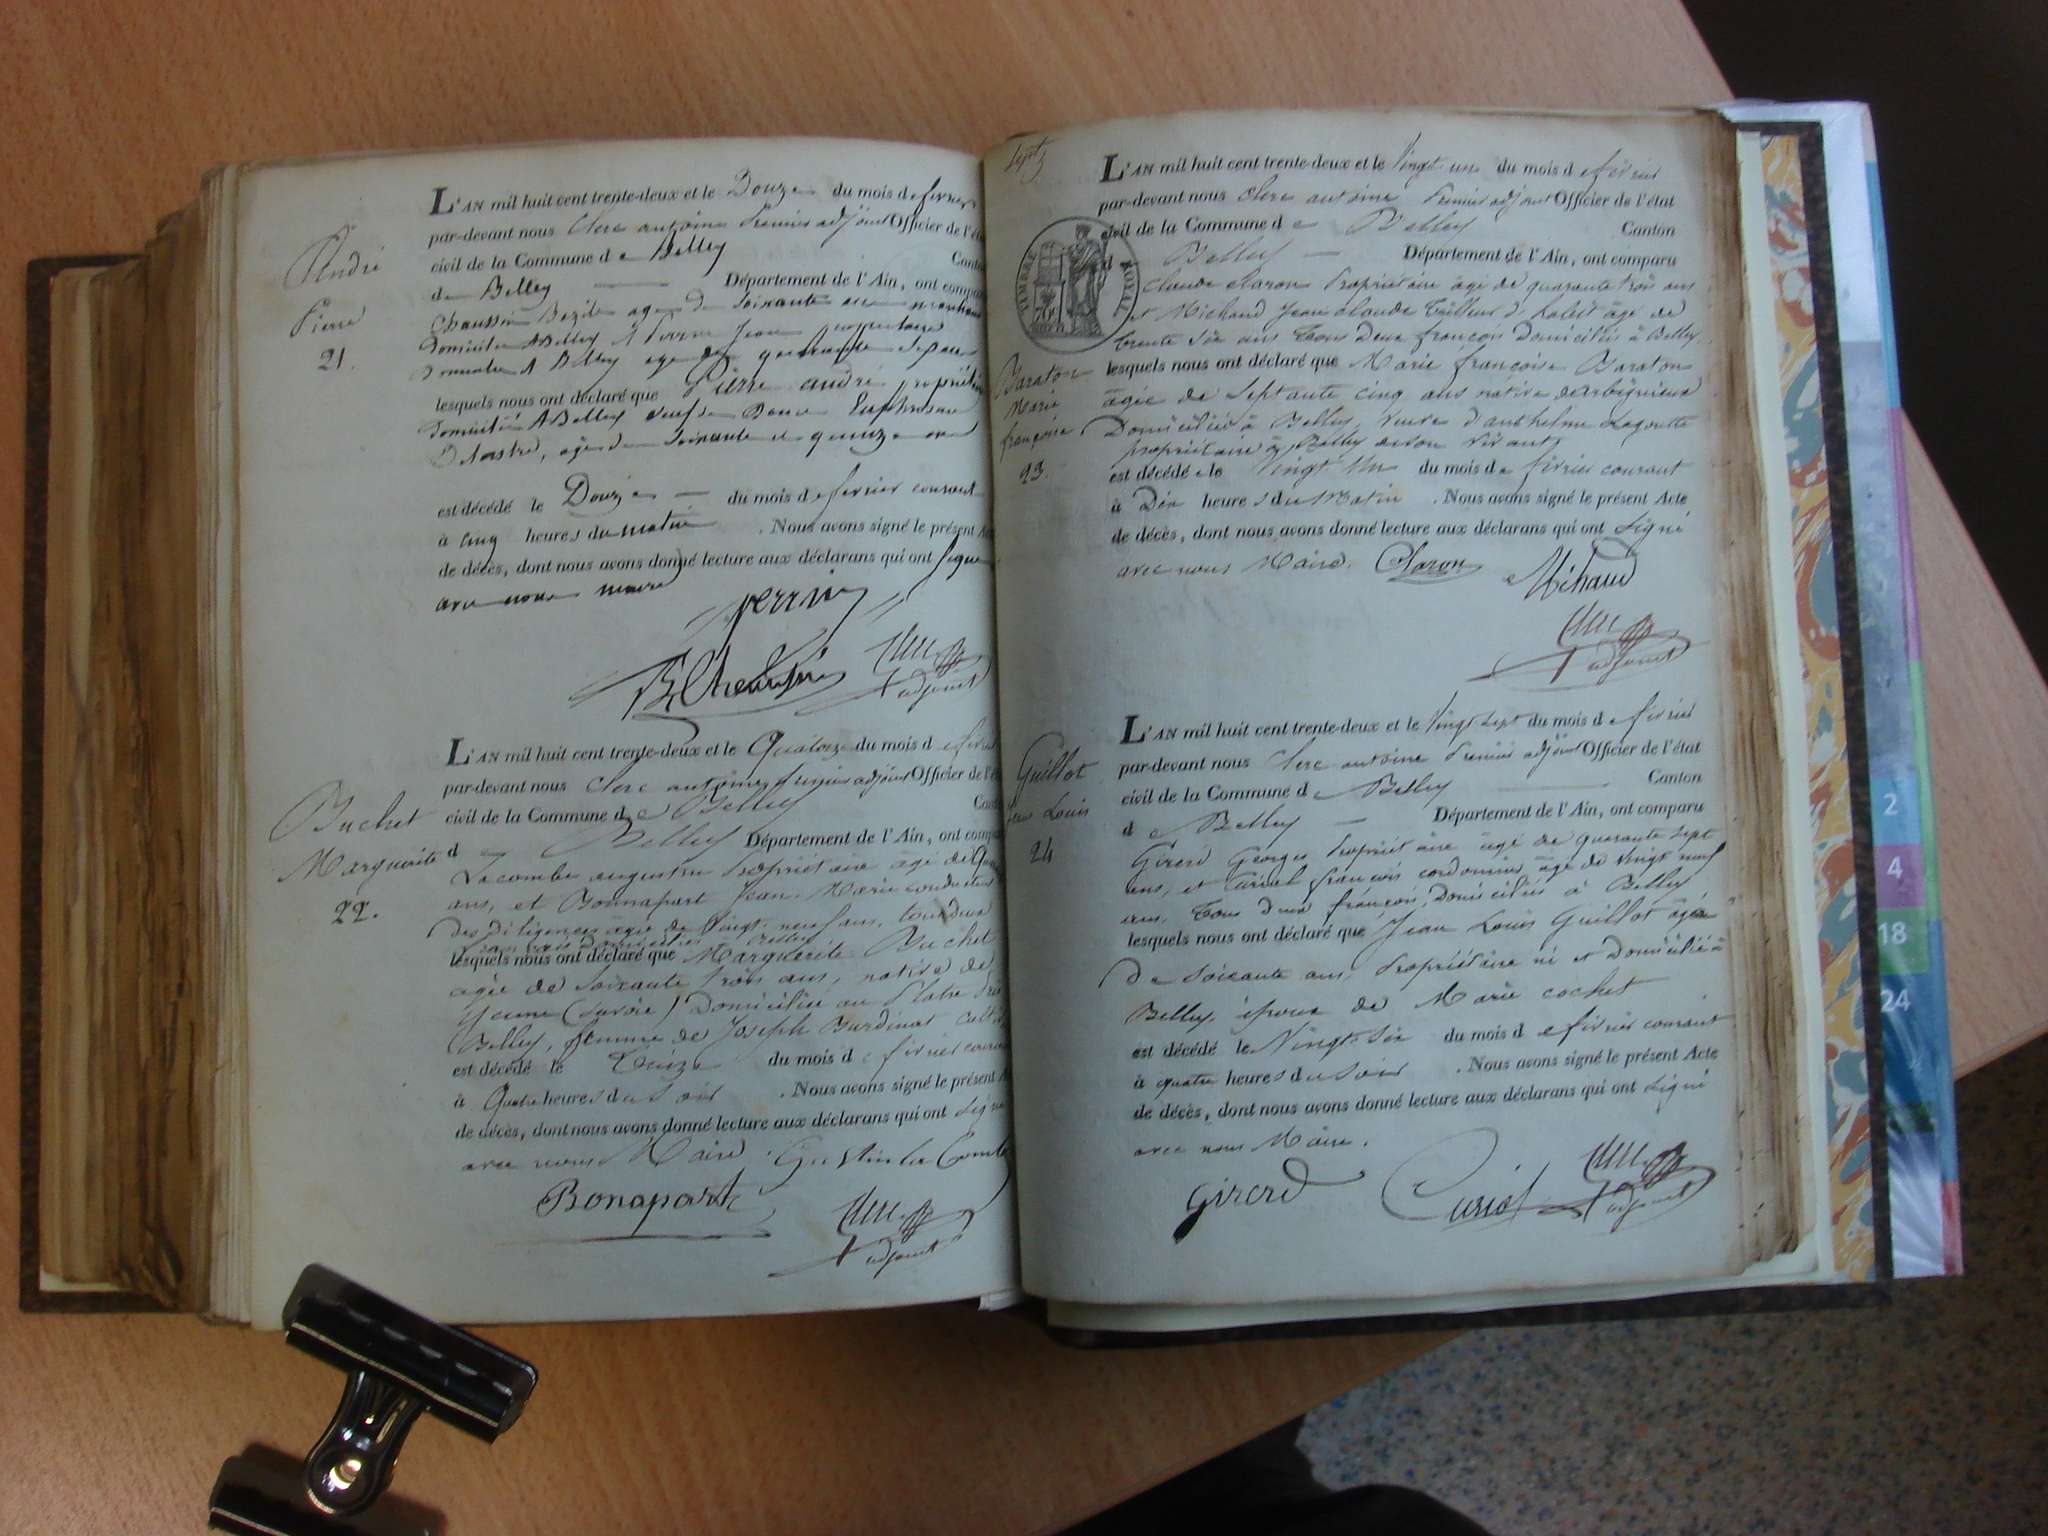 André
Pierre
21.
L'AN mil huit cent trente-deux et le Douze du mois de fevrier
par-devant nous Clerc antoine Premier adjoint Officier de l'éta
civil de la Commune de Belley Canton
de Belley Département de l'Ain, ont compa
Chaussin Bazile age de soixante
Domicilié A Belley & Perrin Jean proprietaire
A Belley age de quarante
lesquels nous ont déclaré que Pierre andré propriétaire
Domicilié A Belley veuf de
age de soixante et quinze ans
est décédé le Douze du mois de fevrier courant
à cinq heures du matin . Nous avons signé le présent Acte
de décès, dont nous avons donné lecture aux déclarans qui ont signé
avec nous maire
perrin
B. Chaussin
Clerc
adjoint
Buchet
Marguerite
22.
L'AN mil huit cent trente-deux et le Quatorze du mois de fevrier
par-devant nous Clerc antoine Premier adjoint Officier de l'ét
civil de la Commune de Belley Cant
d Belley Département de l'Ain, ont compa
Lacombe augustin Propriétaire âgé de
ans, et Bonnapart Jean Marie conducteur
des Diligences agé de Vingt-neuf ans, tous deux
lesquels nous ont déclaré que Marguerite Buchet
agée de soixante trois ans, native de
Yenne (Savoie) Domiciliée au
Belley, femme de Joseph Burdinat
est décédé le Treize du mois de fevrier courant
à Quatre heures du soir . Nous avons signé le présent
de décès, dont nous avons donné lecture aux déclarans qui ont signé
avec nous Maire
Bonapart
Clerc
adjoint
Sept
TIMBRE ROYAL
Baraton
Marie
françoise
23.
L'AN mil huit cent trente-deux et le Vingt un du mois de février
par-devant nous Clerc antoine Premier adjoint Officier de l'état
civil de la Commune de Belley Canton
d Belley Département de l'Ain, ont comparu
Claude Claron Propriétaire âgé de quarante trois ans
et Michaud Jean Claude Tailleur d'habit âgé de
trente six ans Tous Deux françois Domiciliés à Belley
lesquels nous ont déclaré que Marie françoise Baraton
âgée de Septante cinq ans native
Domiciliée à Belley, veuve d'anthelme
propriétaire à Belley de son vivant
est décédée le Vingt Un du mois de fevrier courant
à Dix heures du Matin . Nous avons signé le présent Acte
de décès, dont nous avons donné lecture aux déclarans qui ont signé
avec nous Maire. Claron
Michaud
Clerc
adjoint
Guillot
Jean Louis
24
L'AN mil huit cent trente-deux et le Vingt sept du mois de fevrier
par-devant nous Clerc antoine Premier adjoint Officier de l'état
civil de la Commune de Belley Canton
de Belley Département de l'Ain, ont comparu
Girerd Georges Propriétaire âgé de quarante sept
ans, et Curial françois cordonnier âgé de Vingt neuf
ans, Tous Deux françois, Domiciliés à Belley
lesquels nous ont déclaré que Jean Louis Guillot âgé
De soixante ans Propriétaire né et Domicilié à
Belley, époux de Marie Cochet
est décédé le Vingt-Six du mois de février courant
à quatre heures du soir . Nous avons signé le présent Acte
de décès, dont nous avons donné lecture aux déclarans qui ont signé
avec nous Maire.
Girerd
Clerc
adjoint
2
4
18
24